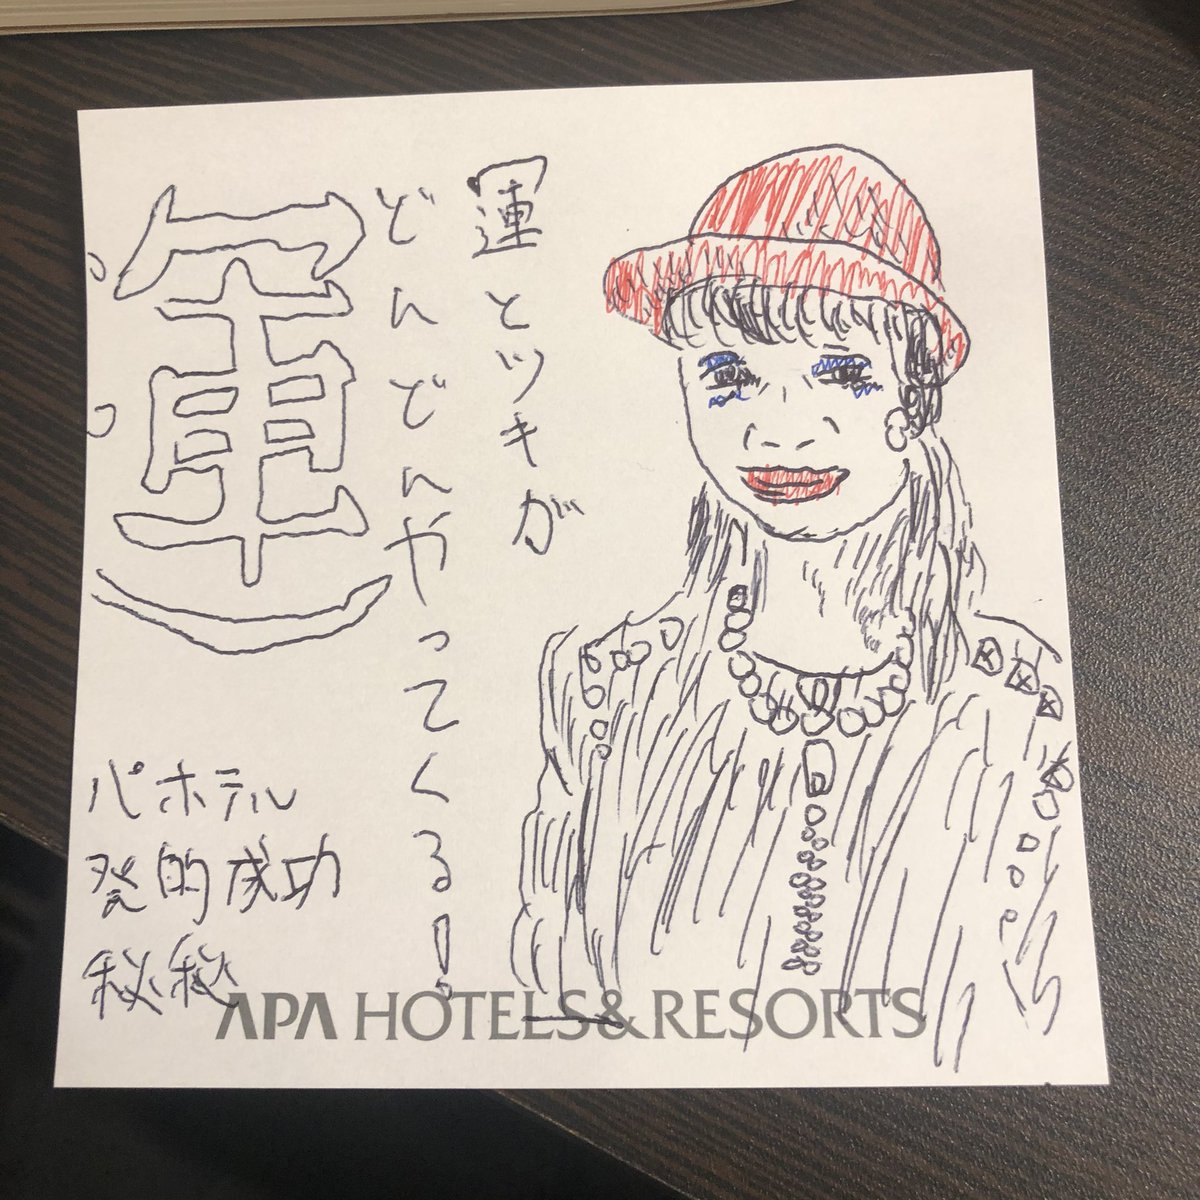 運とツキが
どんどんやってくる!
運
パホテル
発的成功
秘秘
APA HOTELS & RESORTS